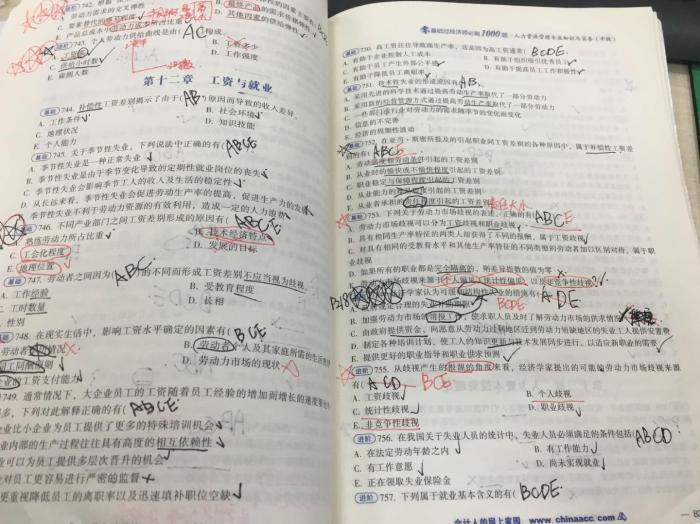 C. 要素替代的难易程度
D. 其他因素的供给弹性
E. 产品总成本中劳动力成本所占比重
743. 个人劳动力供给曲线是由( )构成。 AC
B. 工资多少
C. 送给小时数
D. 工作强度
E. 雇佣人数
第十二章 工资与就业
744. 补偿性工资差别揭示了由于( )原因而导致的收入差异。 AB
A. 工作条件
B. 社会环境
C. 地理状况
D. 知识技能
E. 个人能力
745. 关于季节性失业,下列说法中正确的有( ABCE
A. 季节性失业是一种正常失业
B. 季节性失业是由于季节变化导致的定期性就业岗位的丧失
C. 季节性失业会影响季节工人的收入及生活的稳定性
D. 从长远来看,季节性失业会促进劳动生产率的提高,促进生产力的发展
季节性失业不利于劳动力资源的有效利用,造成一定的人力浪费
746. 不同产业部门之间工资差别形成的原因有( ABCE
熟练劳动力所占比重
B. 技术经济特点
C. 工会化程度
D. 发展的目标
E. 地理位置
747. 劳动者之间因为( )的不同而形成工资差别不应当视为歧视 ABC
A. 工作经验
B. 受教育程度
C. 工时数量
D. 长相
性别
748. 在现实生活中,影响工资水平确定的因素有( BCE
B. 劳动者个人及其家庭所需的生活费用
同工同酬原则
D. 劳动力市场的现状
企业的工资支付能力
749. 通常情况下,大企业员工的工资随着员工经验的增加而增长的速度
下列对此解释正确的有( ABCE
业比小企业为员工提供了更多的特殊培训机会
业内部的生产过程往往具有高度的相互依赖性
业可以为员工提供多层次晋升的机会
业对员工更容易进行严密的监督
更重视降低员工的离职率以及迅速填补职位空缺
零基础过经济师必刷1000题·人力资源管理专业知识与实务(中级)
750. 高工资往往导致高生产率,这是因为高工资通常( BCDE
A. 有助于企业控制人工成本
B. 有助于组织吸引优秀员工
C. 有助于员工产生外部公平感
D. 有助于提高员工工作积极性
E. 有助于降低员工离职率
751. 技术性失业的形成原因有( AB
A. 采用先进的科学技术通过提高劳动生产率取代了一部分劳动力
B. 采用新的经营管理方式通过提高劳动生产率取代了一部分劳动力
C. 一些部门或行业对劳动力的需求随季节的变化而变化
D. 信息的不完善
E. 经济的周期性波动
752. 在亚当·斯密所提及的引起职业间工资差别的各种原因中,属于补偿性工资差
别的有( ABCE
A. 劳动强度和劳动条件引起的工资差别
B. 从业时的愉快或不愉快程度引起的工资差别
C. 职业稳定与保障程度引起的工资差别
E. 从业者承担的责任程度引起的工资差别 责任大小
753. 下列关于劳动力市场歧视的表述,正确的有( ABCE
A. 劳动力市场歧视可以分为工资歧视和职业歧视
B. 具有相同生产率特征的两类人却获得了不同的报酬,属于工资歧视
C. 对具有相同的受教育水平和其他生产率特征的不同类型的劳动者加以区别对待,属于职
业歧视
D. 如果所有的职业都是完全隔离的,则差异指数的值为零
B. 加强劳动力市场的情报工作,使求职人员及时了解劳动力市场的供求情况
C. 由政府提供资金,向愿意从劳动力过剩地区迁到劳动力短缺地区的失业工人提供安置费
D. 制定各种培训计划,使工人的知识更新与技术发展同步进行,以适应新职业的需要
E. 提供更好的职业指导和职业供求预测
755. 从歧视产生的根源的角度来看,经济学家提出的可能的劳动力市场歧视来源
有( ACD BCE
A. 工资歧视
B. 个人歧视
C. 统计性歧视
D. 职业歧视
E. 非竞争性歧视
756. 在我国关于失业人员的统计中,失业人员必须满足的条件包括( ABCD
A. 在法定劳动年龄之内
B. 有工作能力
C. 有工作意愿
D. 尚未实现就业
E. 正在领取失业保险金
757. 下列属于就业基本含义的有( BCDE
会计人的网上家园 www.chinaacc.com